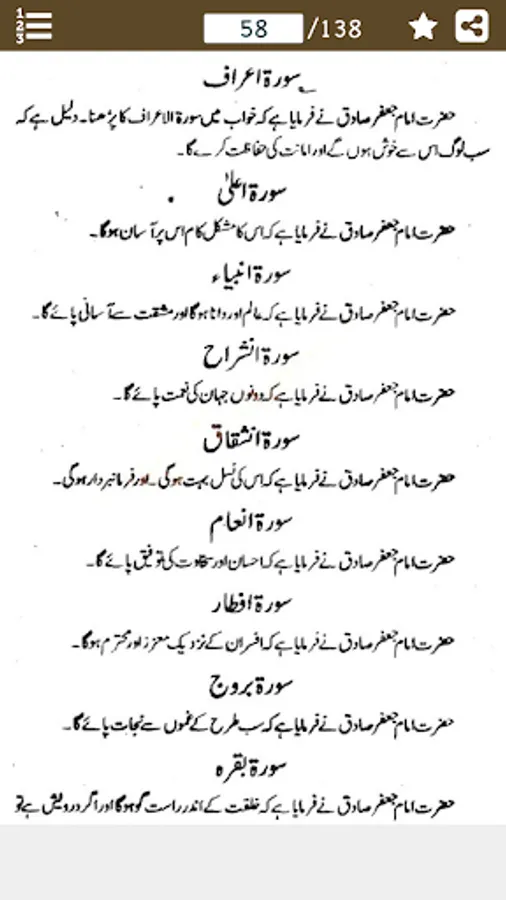 1 2 3
58 /138
سورۃ اعراف
حضرت امام جعفر صادق نے فرمایا ہے کہ خواب میں سورۃ الاعراف کا پڑھنا۔ دلیل ہے کہ
سب لوگ اس سے خوش ہوں گے اور امانت کی حفاظت کرے گا۔
سورۃ اعلیٰ
حضرت امام جعفر صادق نے فرمایا ہے کہ اس کا مشکل کام اس پر آسان ہوگا۔
سورۃ انبیاء
حضرت امام جعفر صادق نے فرمایا ہے کہ عالم اور دانا ہوگا اور مشقت سے آسانی پائے گا۔
سورۃ انشراح
حضرت امام جعفر صادق نے فرمایا ہے کہ دونوں جہان کی نعمت پائے گا۔
سورۃ انشقاق
حضرت امام جعفر صادق نے فرمایا ہے کہ اس کی نسل بہت ہوگی۔ اور فرمانبردار ہوگی۔
سورۃ انعام
حضرت امام جعفر صادق نے فرمایا ہے کہ احسان اور سخاوت کی توفیق پائے گا۔
سورۃ افطار
حضرت امام جعفر صادق نے فرمایا ہے کہ افسران کے نزدیک معزز اور محترم ہوگا۔
سورۃ بروج
حضرت امام جعفر صادق نے فرمایا ہے کہ سب طرح کے غموں سے نجات پائے گا۔
سورۃ بقرہ
حضرت امام جعفر صادق نے فرمایا ہے کہ خلقت کے اندر راست گو ہوگا اور اگر درویش ہے تو